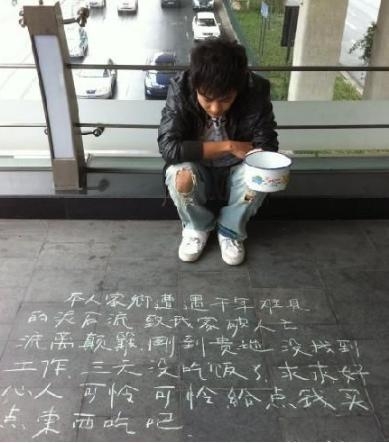 本人家鄉遭遇千年难見
的泥石流 致我家破人亡
流离颠簸 到贵地 没找到
工作,三天没吃饭了,求求好
心人 可怜可怜給点钱买
点東西吃吧.